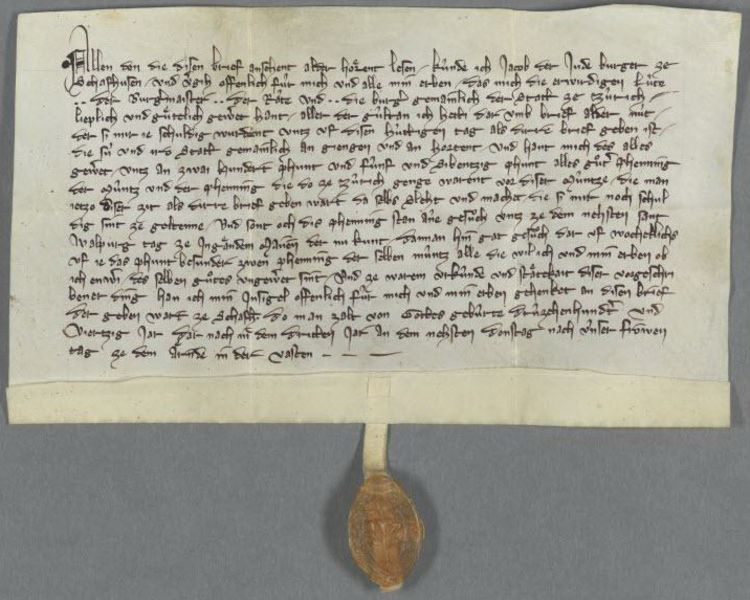 Allen den die disen brief ansehent alder hoͤrent lesen / kúnde ich Jacob der Jude burger ze
Schafhusen / und vergih offenlich fúr mich und alle min erben / das mich die erwirdigen Lúte
.. der Burgmaister .. der Rate und .. die burger gemainlich der Statt ze Zúrich /
lieplich und guͤtlich gewert hant / aller der gúltan ich hett dar umb brief alder nút /
der si mir ie schuldig wurdent untz uf disen húttigen tag als dirre brief geben ist /
die sú und ir Statt gemainlich an giengen und an horetent und hant mich des alles
gewert / untz an zwai hundert phunt und fúnf und Sibentzig phunt alles guͦter phenning
der Múntz und der phenning die do ze Zúrich genge warent vor diser Múntze / die man
ietzo diser zit als dirre brief geben wart da selbs slecht und machet die si mir noch schul
dig sint ze geltenne / Und sont och dis phenning stan ane gesuͦch untz ze dem nehsten sant
Walpurg tag ze Ingandem Maien der nu kunt / dannan hin gat gesuͦch dar uf wochelichs
uf ie das phunt besunder zwen phenning der selben múntz alle die wil ich und min erben ob
ich enwer / des selben guͦtes ungewert sint / Und ze warem urkúnde und stattkait diser vorgeschri
bener ding han ich min Insigel offenlich fúr mich und min erben gehenket an disen brief
der geben wart ze Schafh do man zalt von Gottes gebúrte drúzehenhundert und
Viertzig Jar / dar nach in dem dritten Jar an dem nehsten donstag nach únser frowen
tag ze dem Arnde in der vasten - - -